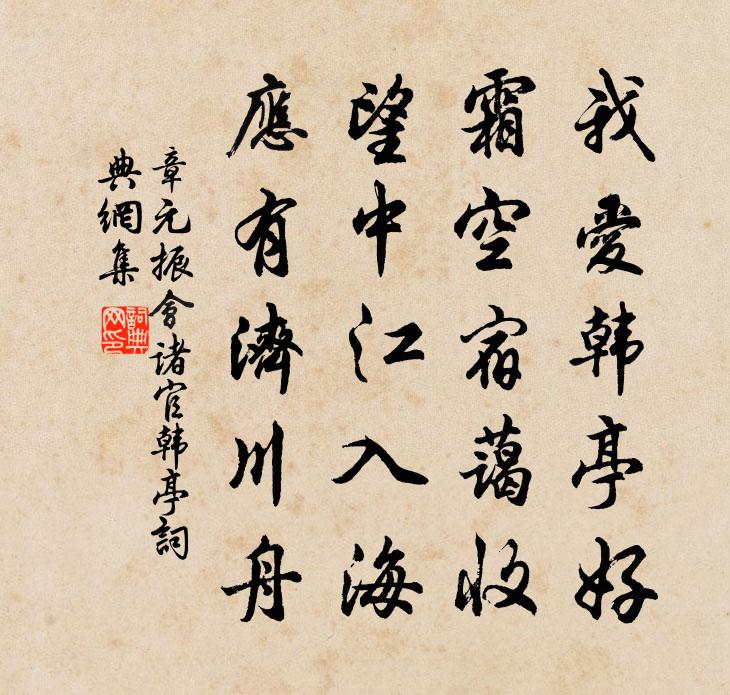 我愛韩亭好
霜空宿藹收
望中江入海
應有濟川舟
章元振會诸官韩亭詞
典網集
詞典
网印